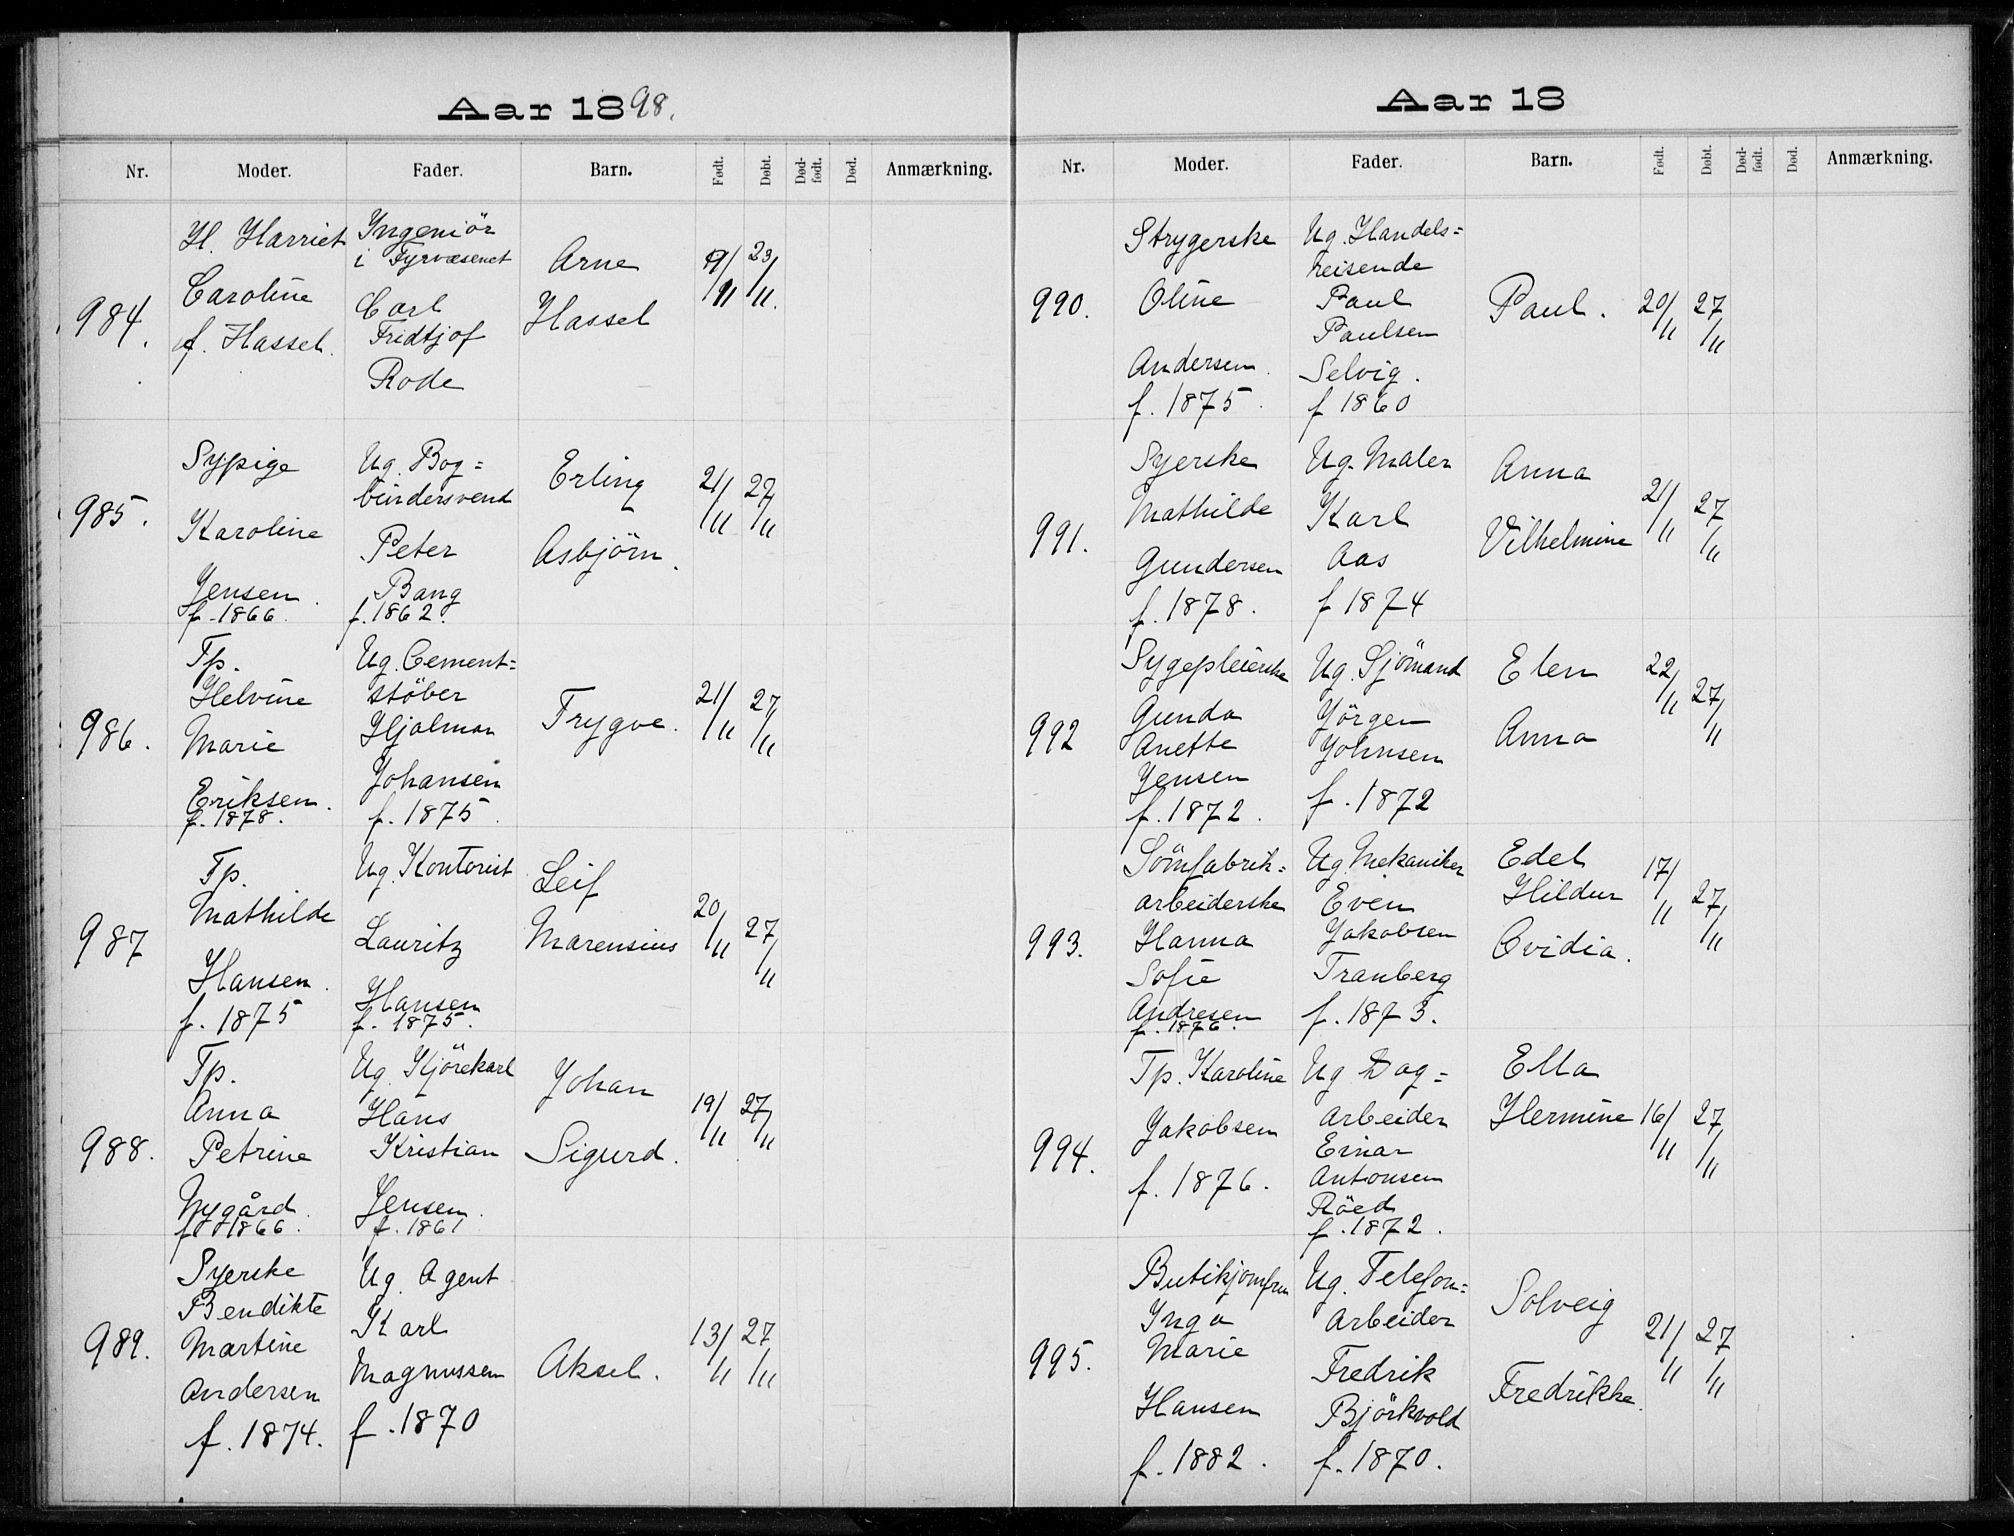 Aar 1898.
Nr. Moder. Fader. Barn. Født. Døbt. Død-født. Død. Anmærkning.
984.
H. Harriet
Caroline
f. Hassel.
Ingeniör
i Fyrvæsenet
Carl
Fridtjof
Rode
Arne
Hassel
9/11 23/11.
985.
Sypige
Karoline
Jensen.
f. 1866.
Ug. Bog=
bindersvend
Peter
Bang
f. 1862.
Erling
Asbjörn.
21/11 27/11
986.
Tp.
Helvine
Marie
Eriksen.
f. 1878.
Ug. Cement=
stöber
Hjalmar
Johansen
f. 1875.
Trygve.
21/11 27/11
987
Tp.
Mathilde
Hansen.
f. 1875
Ug. Kontorist
Lauritz
Hansen
f. 1875.
Leif
Marensius
20/11 27/11
988.
Tp.
Anna
Petrine
Nygård.
f. 1866.
Ug. Kjörekarl
Hans
Kristian
Jensen.
f. 1861
Johan
Sigurd.
19/11 27/11
989.
Syerske
Bendikte
Martine
Andersen
f. 1874.
Ug. Agent
Karl
Magnussen
f. 1870
Aksel.
13/11 27/11
Aar 18
Nr. Moder. Fader. Barn. Født. Døbt. Død-født. Død. Anmærkning.
990.
Strygerske
Oline
Andersen.
f. 1875.
Ug. Handels=
reisende
Paul
Paulsen
Selvig.
f 1860
Paul.
20/11 27/11
991.
Syerske
Mathilde
Gundersen
f. 1878.
Ug. Maler
Karl
Aas
f 1874
Anna
Vilhelmine
21/11 27/11
992
Sygepleierske
Gunda
Anette
Jensen
f. 1872.
Ug. Sjömand
Jörgen
Johnsen
f. 1872
Elen
Anna
22/11 27/11
993.
Sömfabrik=
arbeiderske
Hanna
Sofie
Andresen
f. 1876.
Ug. Mekaniker
Even
Jakobsen
Tranberg
f. 1873.
Edel
Hildur
Ovidia.
17/11 27/11
994.
Tp. Karoline
Jakobsen
f. 1876.
Ug Dag=
arbeider
Einar
Antonsen
Röed
f. 1872.
Ella
Hermine
16/11 27/11
995.
Butikjomfru
Inga
Marie
Hansen
f. 1882.
Ug. Telefon=
Arbeider
Fredrik
Björkvold
f. 1870.
Solveig
Fredrikke.
21/11 27/11